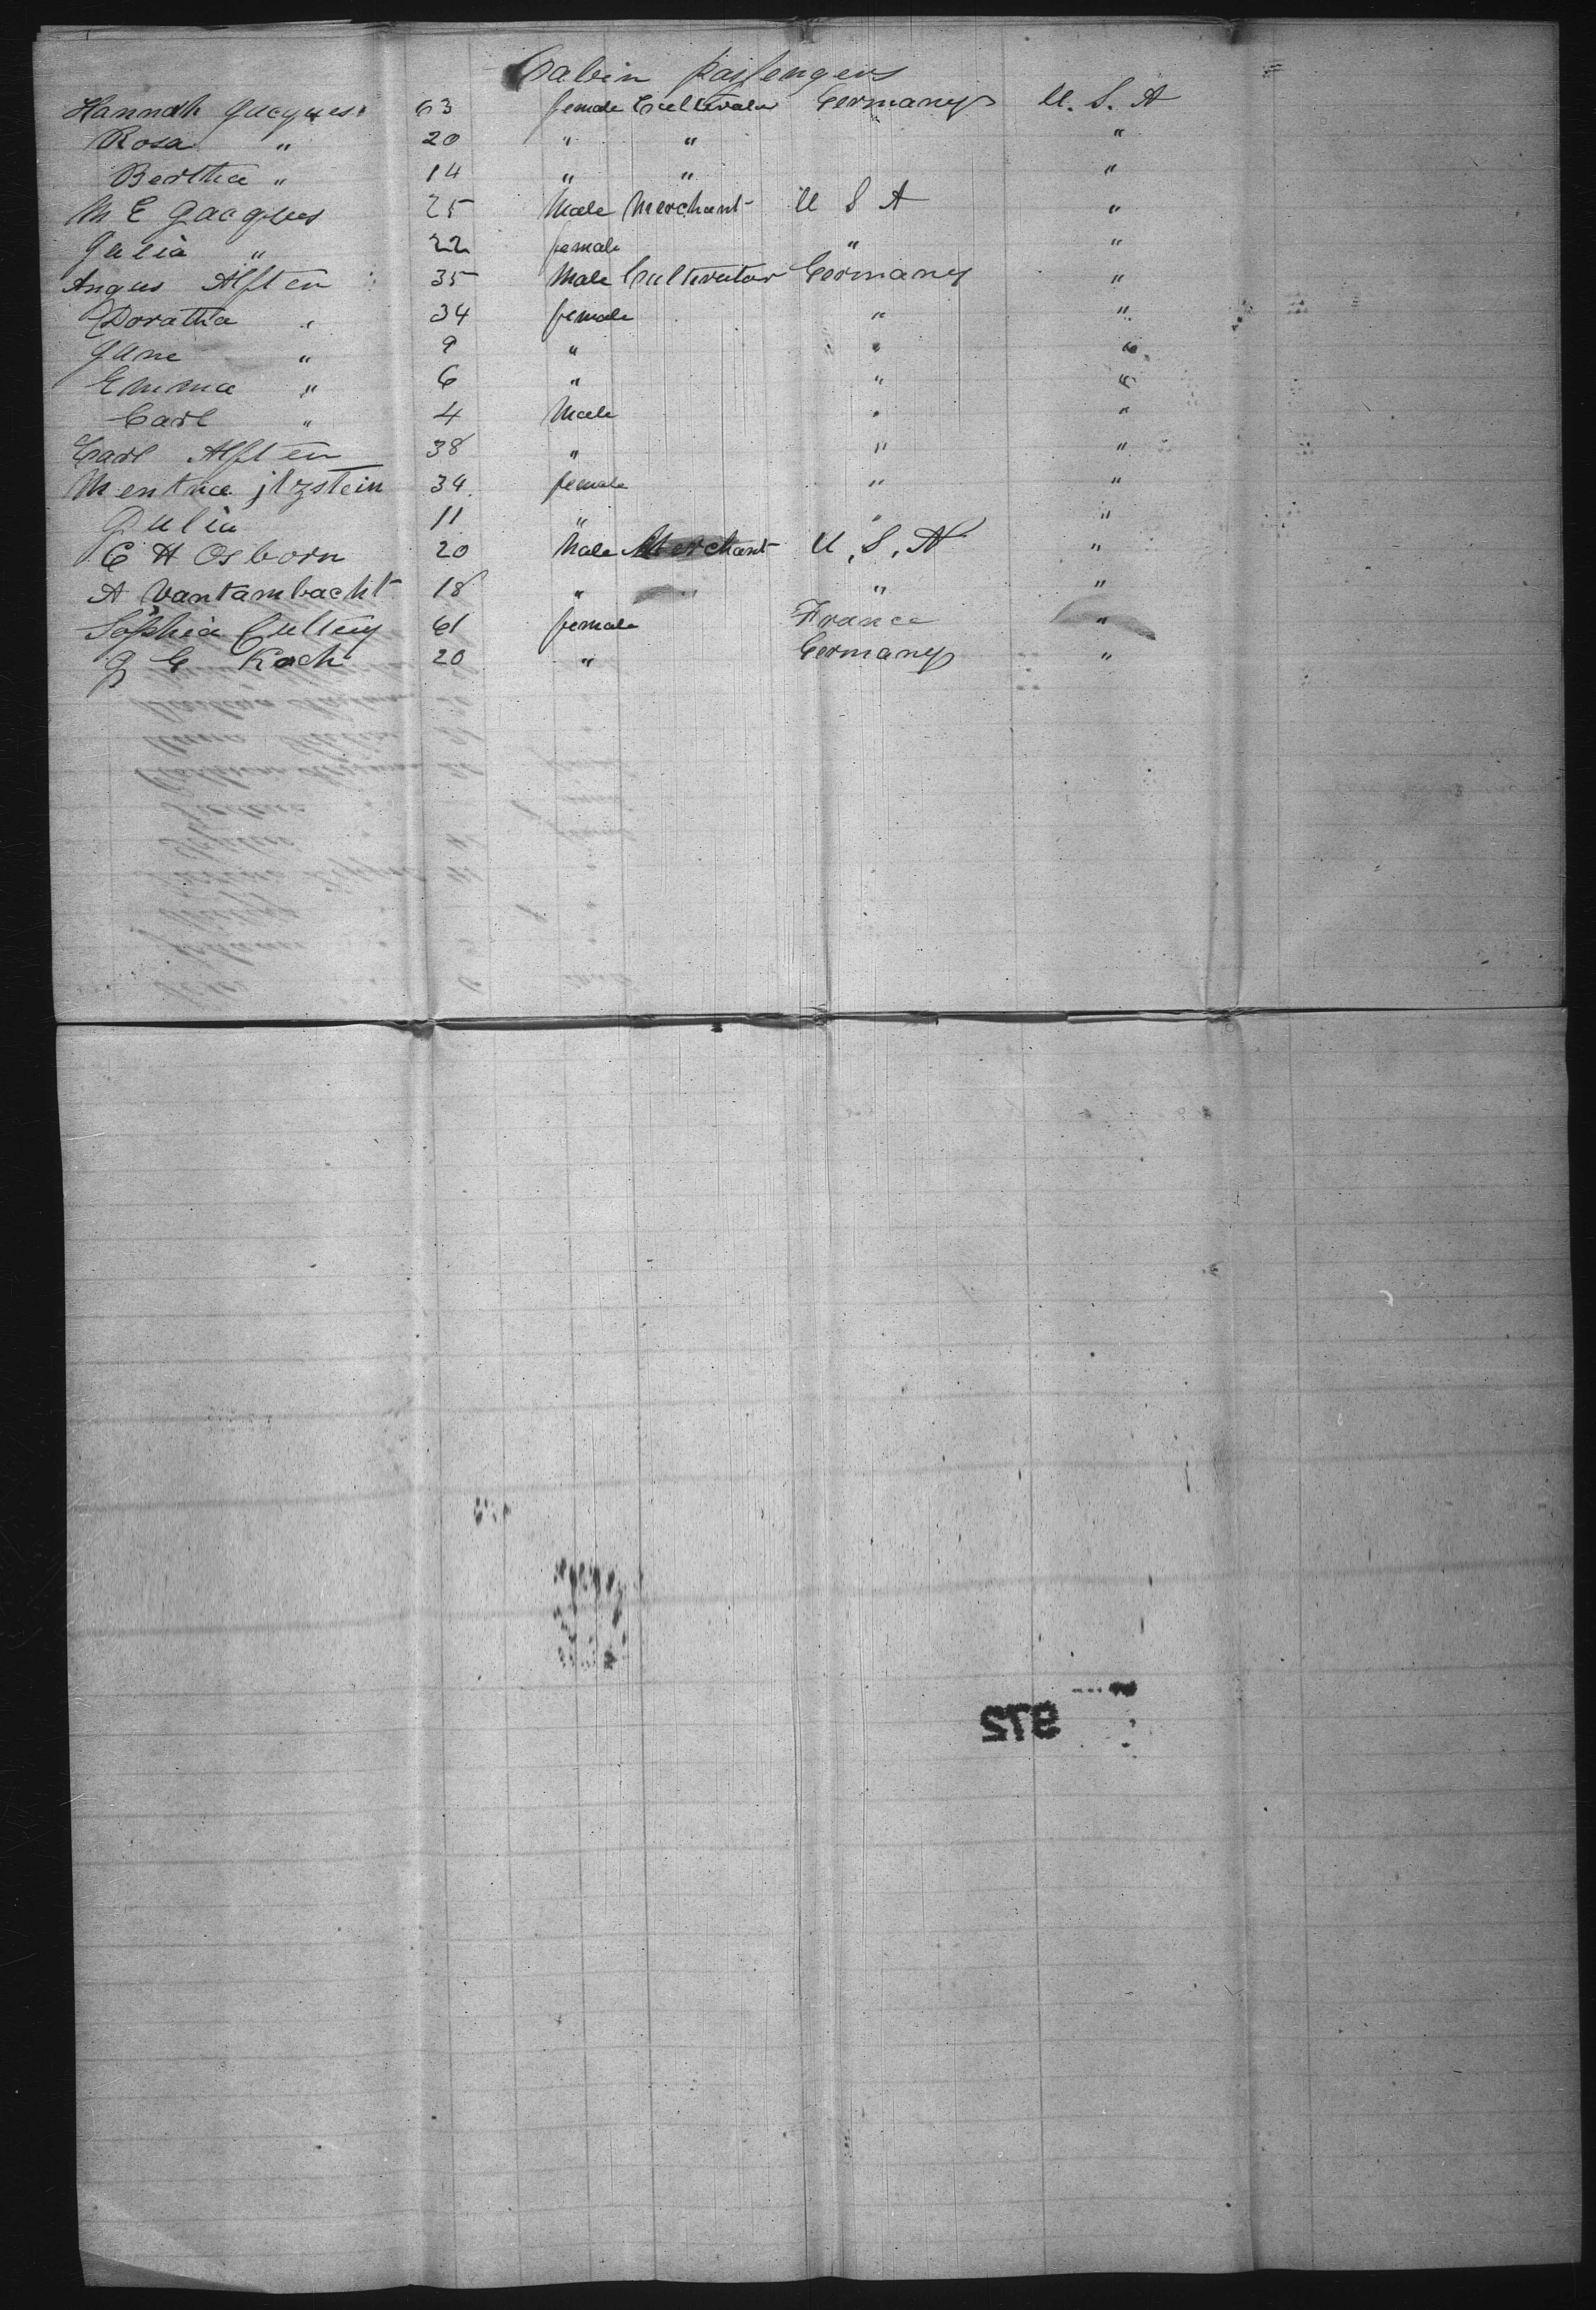 Cabin Passengers
Hannah Jacques 63 female Cultivator Germany U. S. A
Rosa " 20 " " "
Bertha " 14 " " "
M E Jacques 25 Male Merchant U S A "
Julia " 22 female " "
Angus Alften 35 Male Cultivator Germany "
Doratha " 34 female " "
Jane " 9 " " "
Emma " 6 " " "
Carl " 4 Male " "
Carl Alften 38 " " "
Mentna jtzstein 34 female " "
Julia 11 " " "
E H Osborn 20 Male Merchant U. S. A "
A Vantambacht 18 " " "
Sophia 61 female France "
J E Koch 20 " Germany "
972